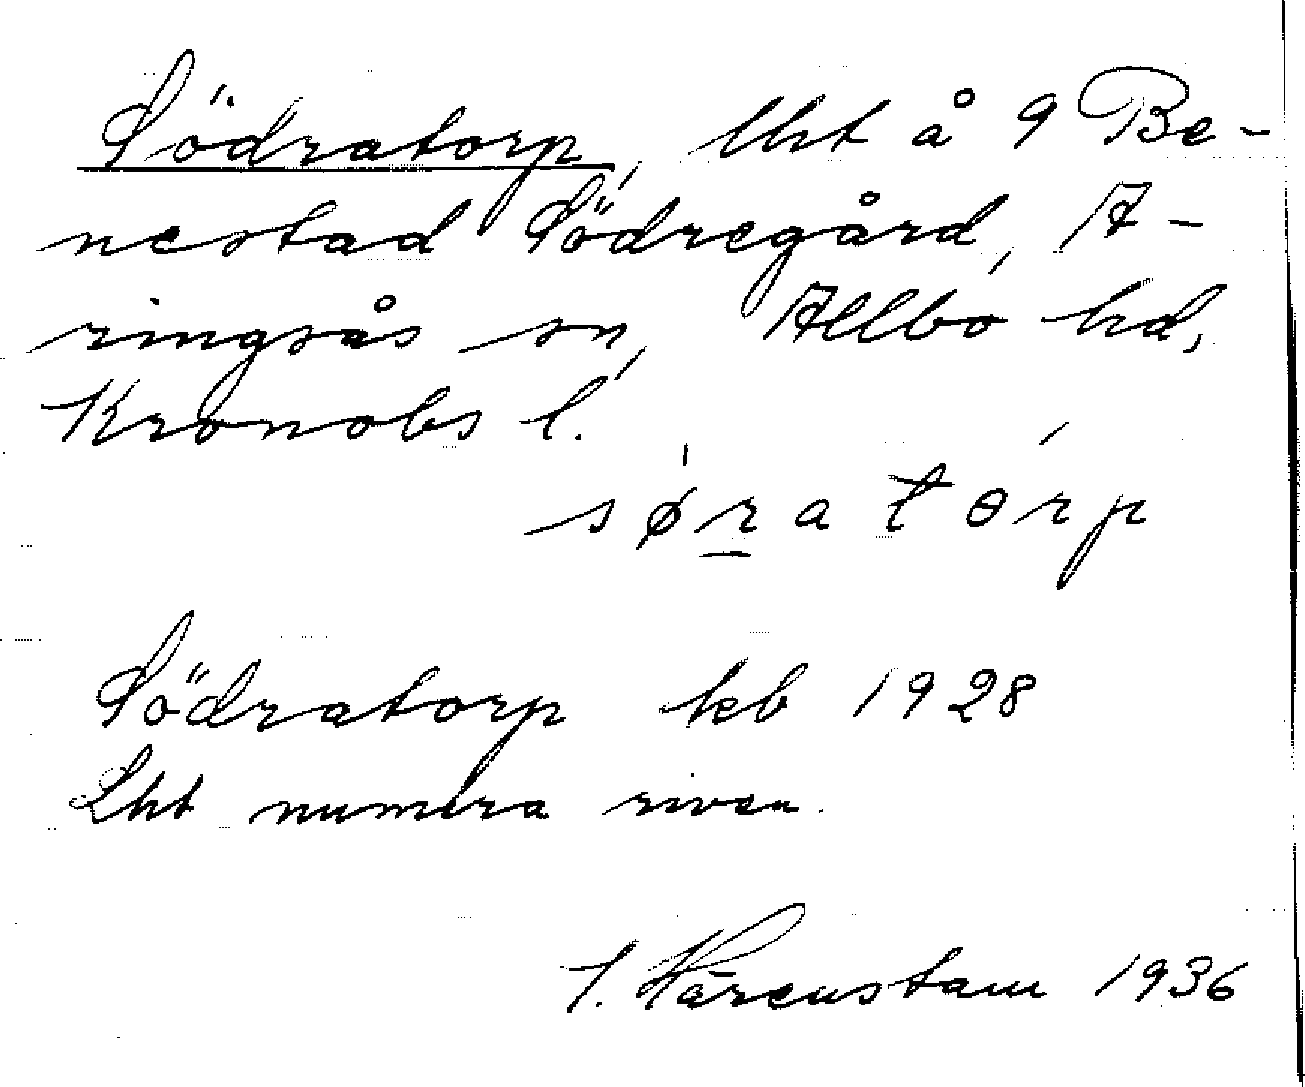 Södratorp, lht å 9 Be-
nestad Södregård, A-
ringsås sn, Allbo hd,
Kronobs l.
søratɵrp
Södratorp kb 1928
Lht numera riven.
J. Hårenstam 1936